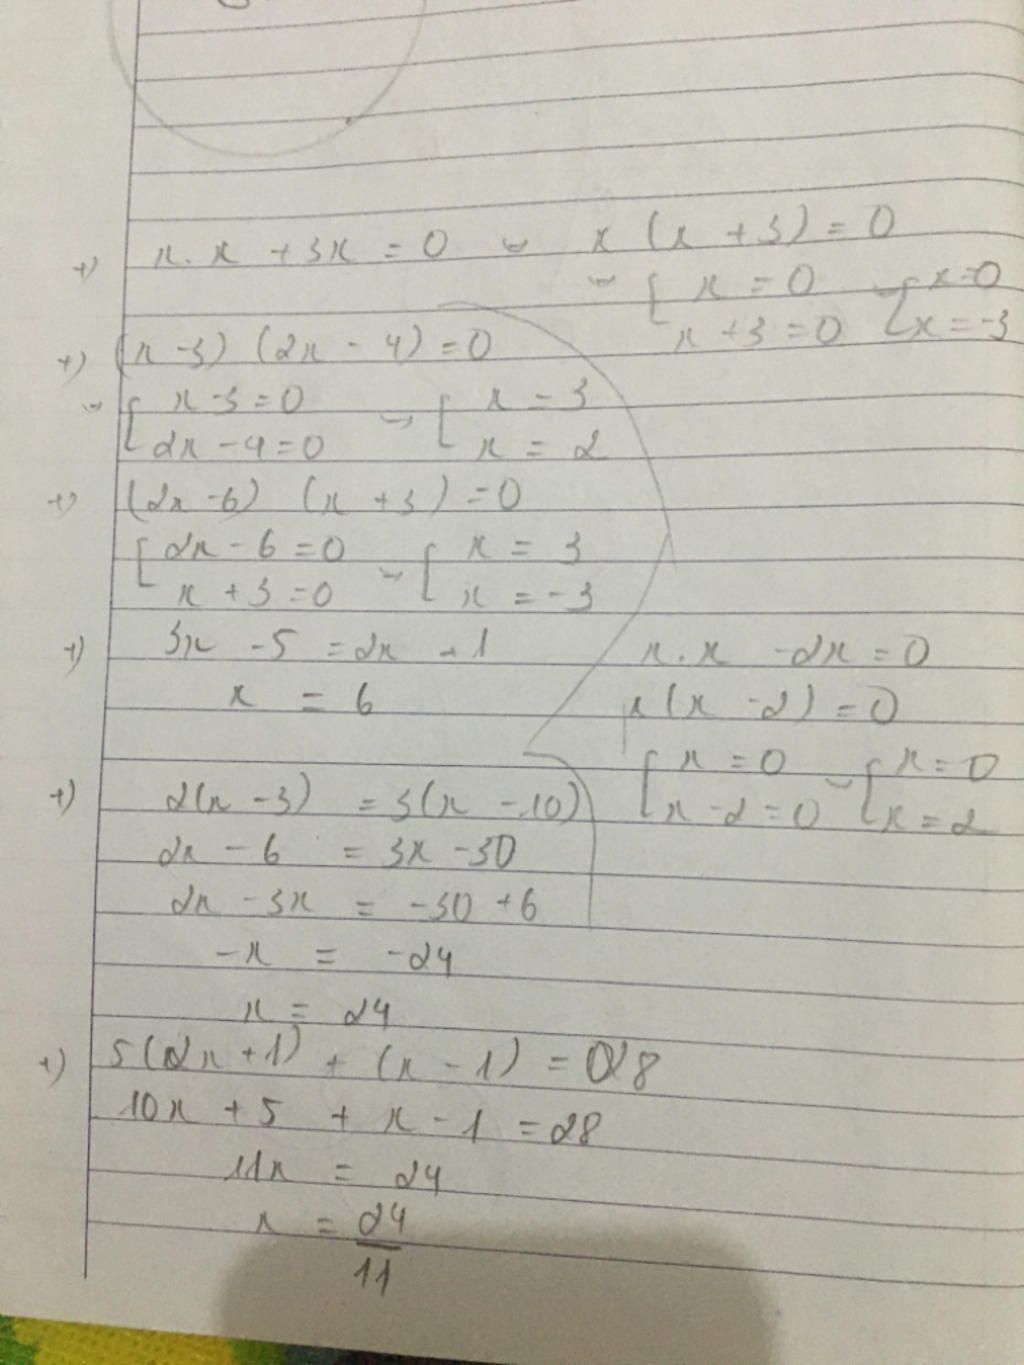 +) x.x + 3x = 0 ⇔ x(x + 3) = 0
⇔ [ x = 0 ⇔ [ x = 0
x + 3 = 0 x = -3
+) (x - 3) (2x - 4) = 0
⇔ [ x - 3 = 0 ⇔ [ x = 3
2x - 4 = 0 x = 2
+) (2x - 6) (x + 3) = 0
[ 2x - 6 = 0 ⇔ [ x = 3
x + 3 = 0 x = -3
+) 3x - 5 = 2x + 1
x = 6
x.x - 2x = 0
x(x - 2) = 0
[ x = 0 ⇔ [ x = 0
x - 2 = 0 x = 2
+) 2(x - 3) = 3(x - 10)
2x - 6 = 3x - 30
2x - 3x = -30 + 6
-x = -24
x = 24
+) 5(2x + 1) + (x - 1) = 28
10x + 5 + x - 1 = 28
11x = 24
x = 24/11